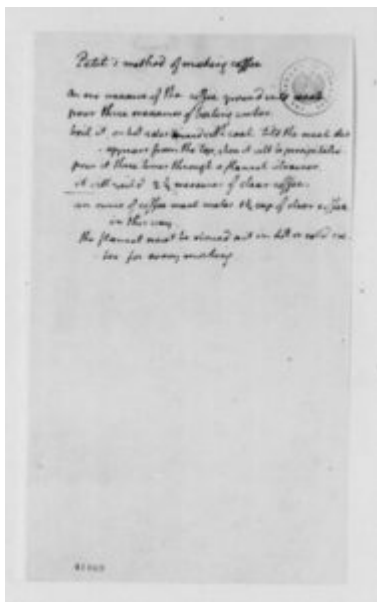 Petit's method of making coffee
on one measure of the coffee ground into meal
pour three measures of boiling water.
boil it, on hot ashes mixed with coal, till the meal dis-
appears from the top, when it will be precipitated.
pour it three times through a flannel strainer.
it will yield 2 ⅓ measures of clear coffee.
an ounce of coffee meal makes 1½ cup of clear coffee
in this way.
the flannel must be rinsed out in hot or cold wa-
ter for every making.